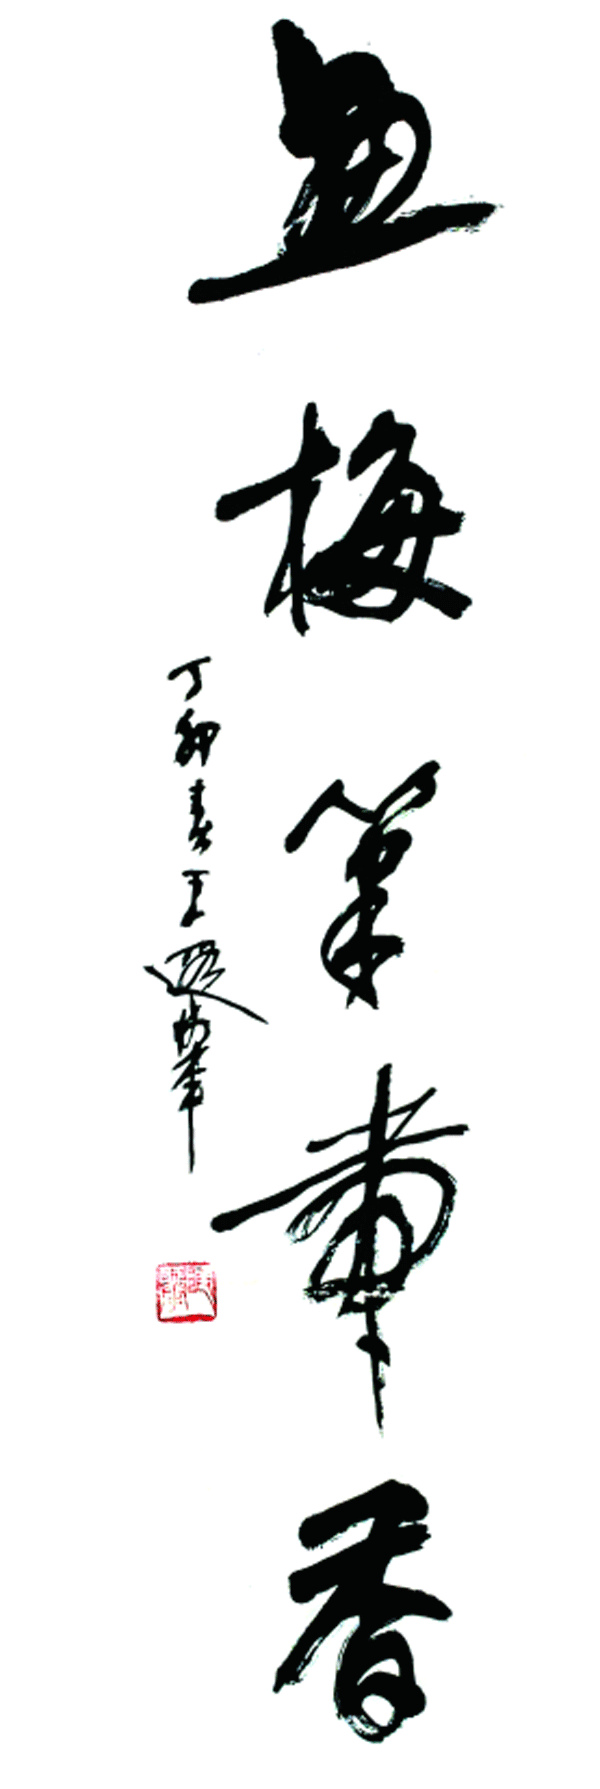 画梅笔带香
丁卯春王遐举